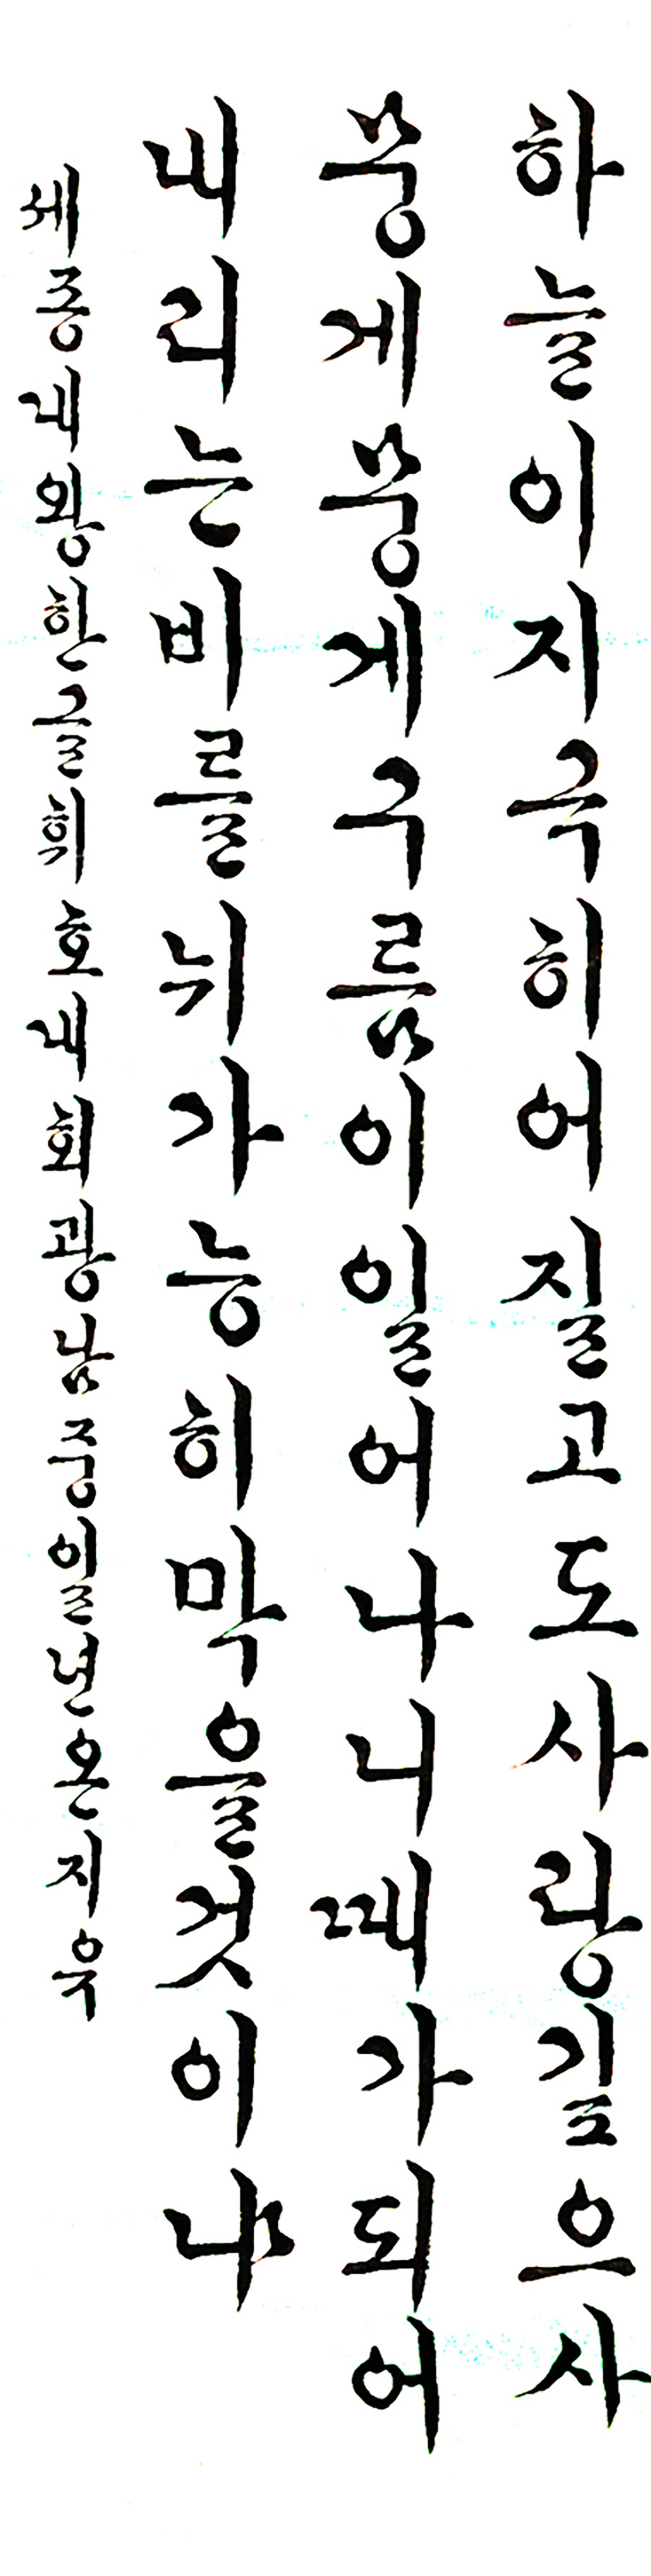 하늘이지극히어질고도사랑깊으사
뭉게뭉게구름이일어나니때가되어
내리는비를뉘가능히막을것이냐
세종대왕한글휘호대회광남중일년온지욱